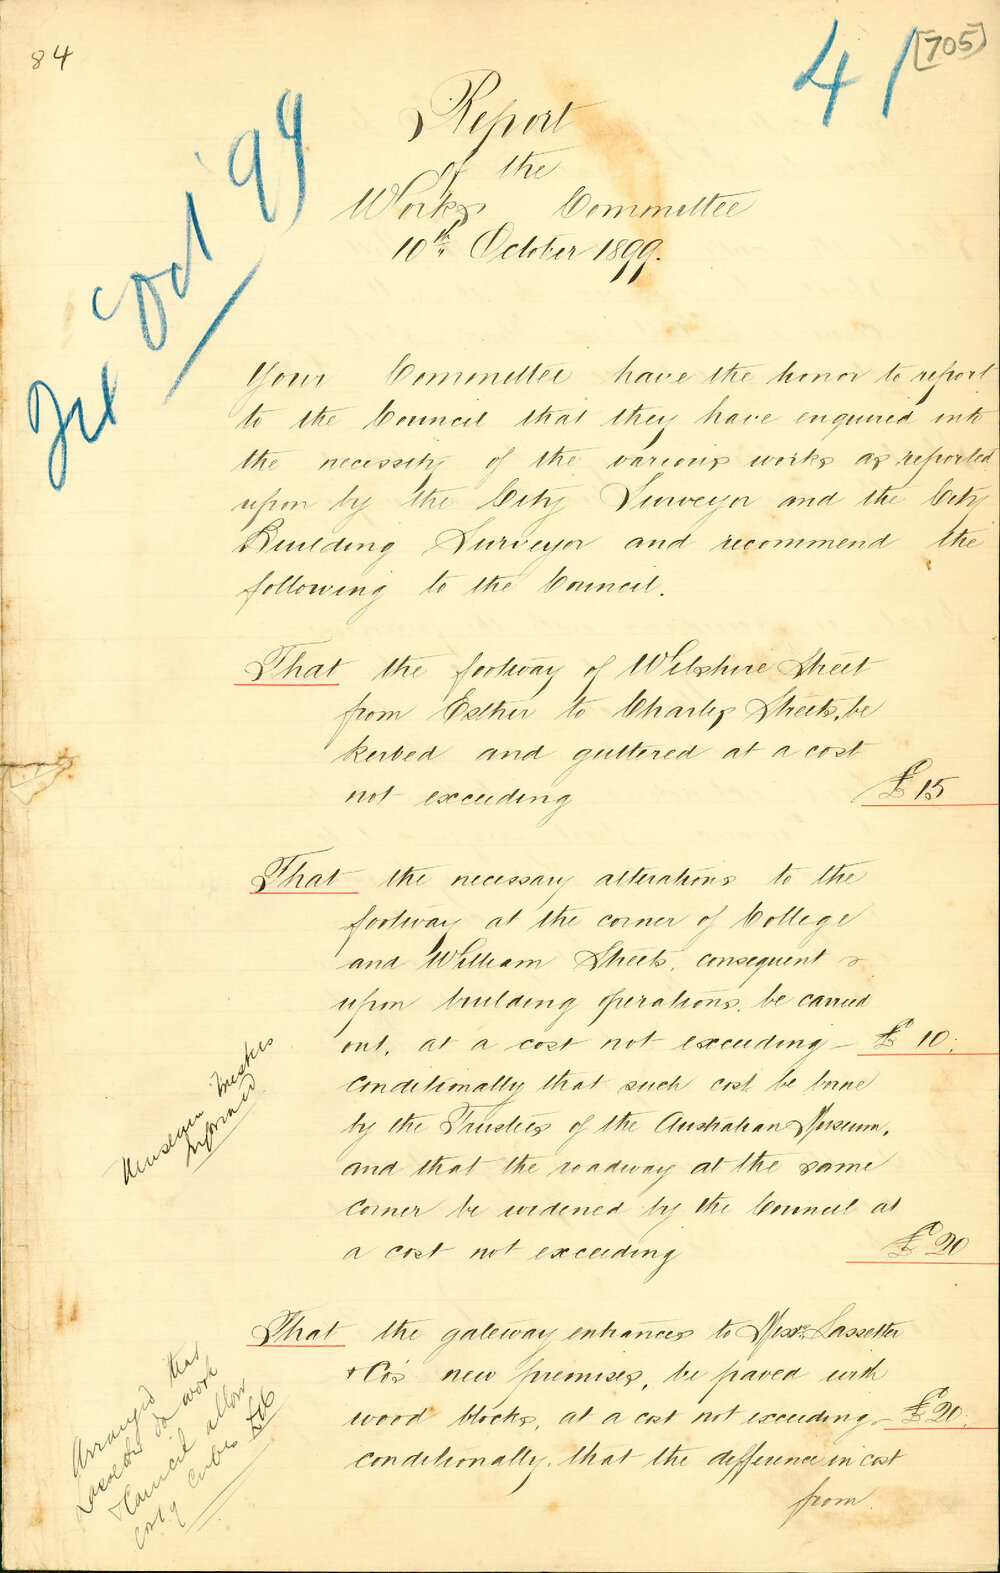 84
41
[705]
Oct '99
Report
of the
Works Committee
10th October 1899.
Your Committee have the honor to report
to the Council that they have enquired into
the necessity of the various works as reported
upon by the City Surveyor and the City
Building Surveyor and recommend the
following to the Council.
That the footway of Wilshire Street
from Esther to Charles Streets, be
kerbed and guttered at a cost
not exceeding £15
That the necessary alterations to the
footway at the corner of College
and William Streets, consequent
upon building operations, be carried
out, at a cost not exceeding - £10;
conditionally that such cost be borne
by the Trustees of the Australian Museum,
and that the roadway at the same
corner be widened by the Council at
a cost not exceeding £20
Museum Trustees
informed
That the gateway entrances to Messrs Lassetter
& Co's new premises, be paved with
wood blocks, at a cost not exceeding - £20;
conditionally, that the difference in cost
from
Arranged that
Lassetter do work
& Council allow
cost of cubes £16